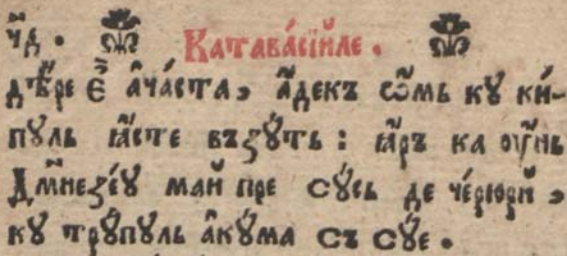 ч҃д. Катава́сїиле.
дѣ́ре є҆̀ а҆ча́ста, а҆́декъ ѡ҆́мь кꙋ ки́-
пꙋль ꙗ҆́сте възꙋ́ть: ꙗ҆́ръ ка оу҆́нь
Дм҃незе́ꙋ май пре сꙋ́сь де че́рюрй,
кꙋ трꙋ́пꙋль а҆кꙋ́ма съ сꙋ́е.